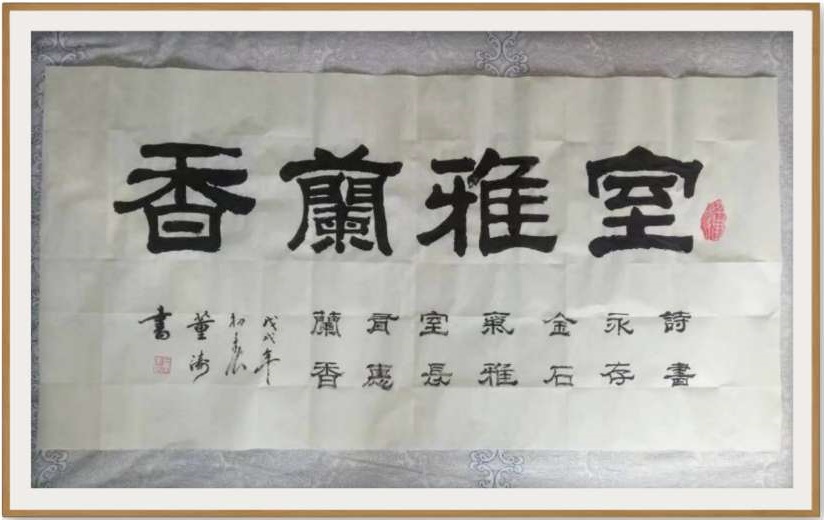 室雅蘭香
詩書
永存
金石
氣雅
室長
有惠
蘭香
戊戌年
初
董
書